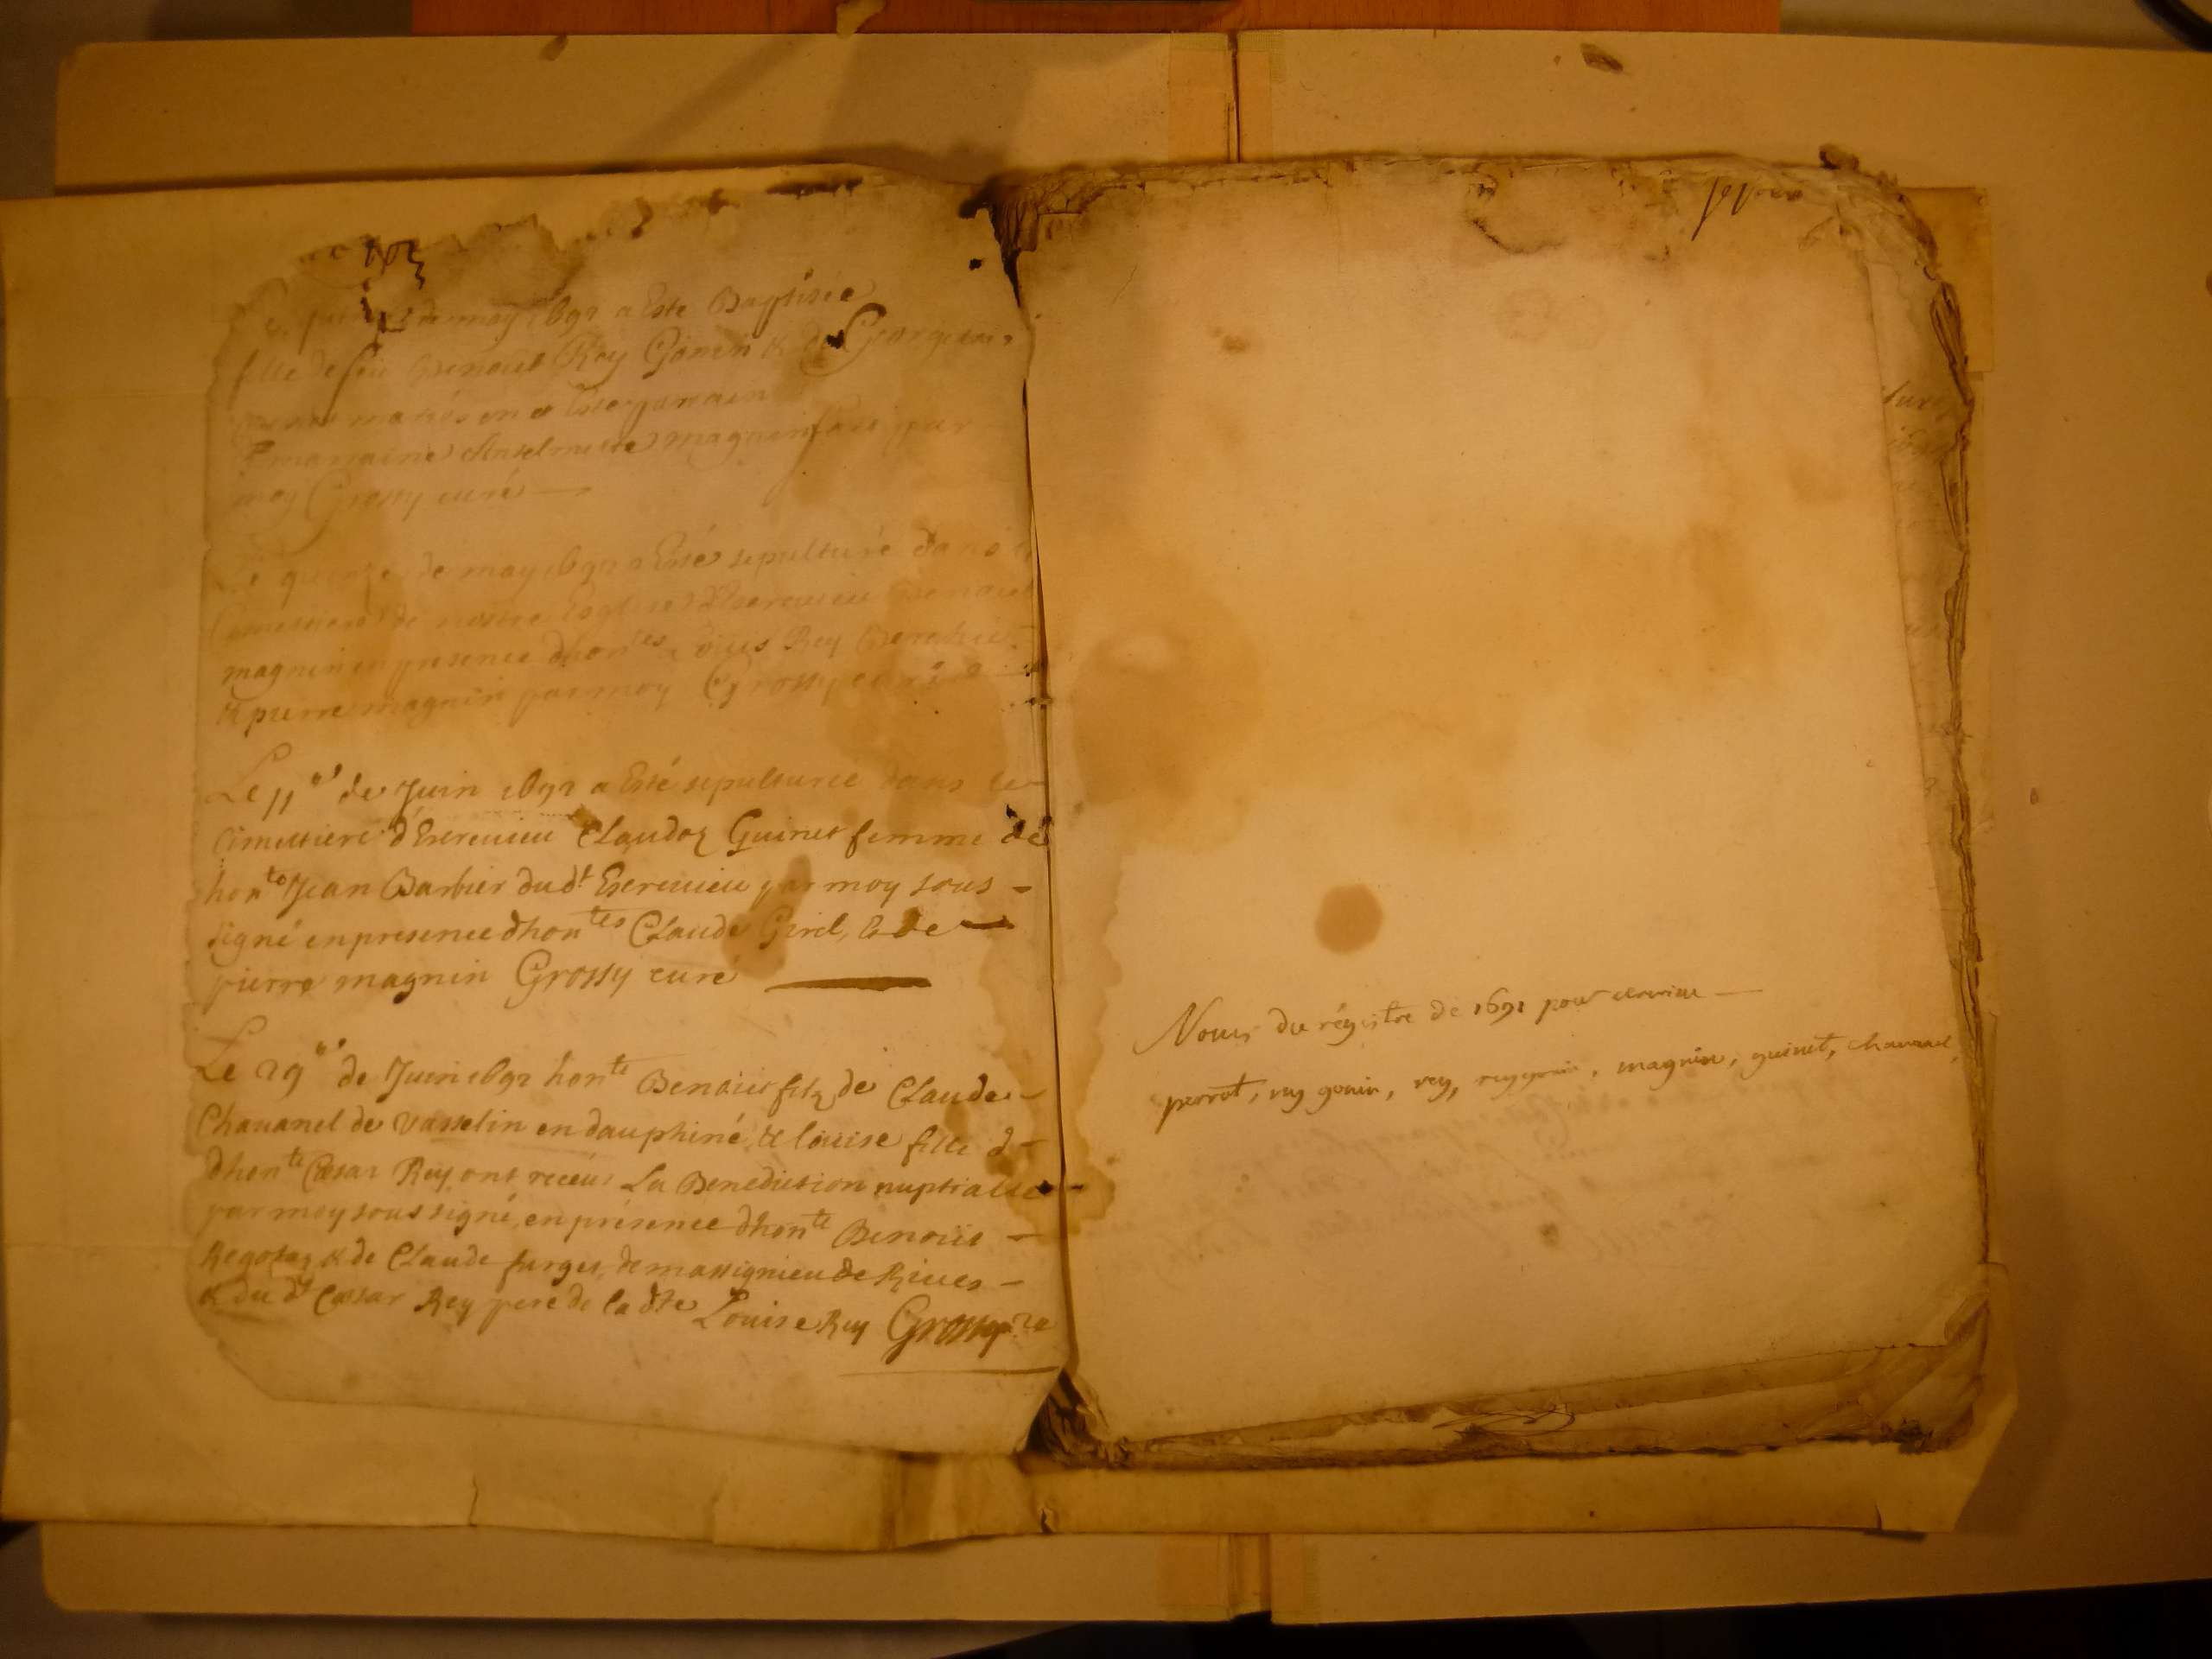 de may 1692 a Esté Baptisée
fille de feu Benoict Rey Gonin & de Georgette
mariés
marraine Anselmette magnin fait par
moy Grossy curé
Le quinze de may 1692 a Esté sepulturé dans le
Cimettiere de nostre Eglise d'Esereuieu Benoict
magnin en presence dhon^tes Rey
& pierre magnin par moy Grossy curé
Le 11^e de Juin 1692 a Esté sepulturée dans le
Cimettiere d'Esereuieu Claudaz Guinet femme de
hon^te Jean Barbier dud^t Esereuieu par moy sous-
signé en presence dhon^tes Claude Girel, & de
pierre magnin Grossy curé
Le 29^e de Juin 1692 hon^te Benoict filz de Claude
Chauanel de Vasselin en dauphiné, & louise fille d-
dhon^te Cæsar Rey ont receu La Benediction nuptialle
par moy soussigné, en présence dhon^te Benoict
Regotaz & de Claude furget, de massignieu de Riues
& du d^t Cæsar Rey pere de la d^te Louise Rey Grossy
Noms du régistre de 1692 pour
perrot, rey gonin, rey, magnin, guinet, chauanel,